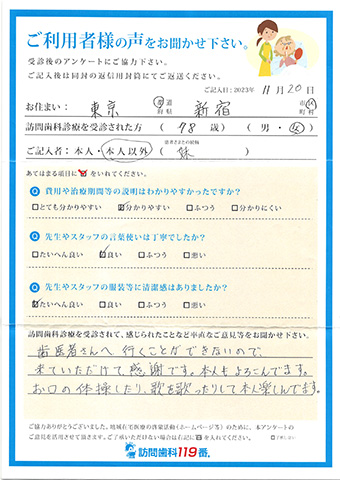 ご利用者様の声をお聞かせ下さい。
受診後のアンケートにご協力下さい。
ご記入後は同封の返信用封筒にてご返送ください。
ご記入日：2023年 11月 20日
お住まい： 東京 都道府県 新宿 市区町村
訪問歯科診療を受診された方 ( 78 歳 ) ( 男・女 )
患者さまとの続柄
ご記入者：本人・本人以外 ( 妹 )
あてはまる項目に☑をいれてください。
Q 費用や治療期間等の説明はわかりやすかったですか？
□とても分かりやすい ☑分かりやすい □ふつう □分かりにくい
Q 先生やスタッフの言葉使いは丁寧でしたか？
□たいへん良い ☑良い □ふつう □悪い
Q 先生やスタッフの服装等に清潔感はありましたか？
☑たいへん良い □良い □ふつう □悪い
訪問歯科診療を受診されて、感じられたことなど率直なご意見等をお聞かせ下さい。
歯医者さんへ行くことができないので、
来ていただけて感謝です。本人もよろこんでます。
お口の体操したり、歌を歌ったりして本人楽しんでます。
ご協力ありがとうございました。地域在宅医療の啓蒙活動(ホームページ等)のために、本アンケートの
ご意見を活用させて頂きます。ご了承いただけない場合は右記に☑を入れてください。 □了承しない
訪問歯科119番。